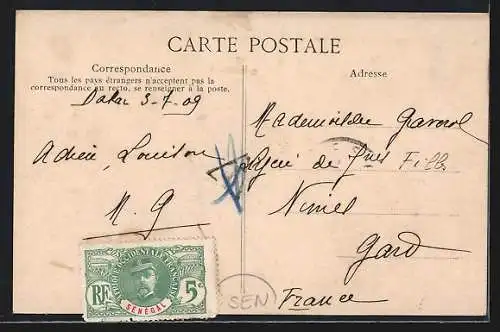 CARTE POSTALE
Correspondance
Tous les pays étrangers n'acceptent pas la
correspondance au recto, se renseigner à la poste.
Dakar 3-7-09
Adieu, Louison
M. G
Adresse
Mademoiselle
Lycée de Jnes Filles
Nimes
Gard
France
AFRIQUE OCCIDENTALE FRANÇAISE
RF
5c
SÉNÉGAL
SEN